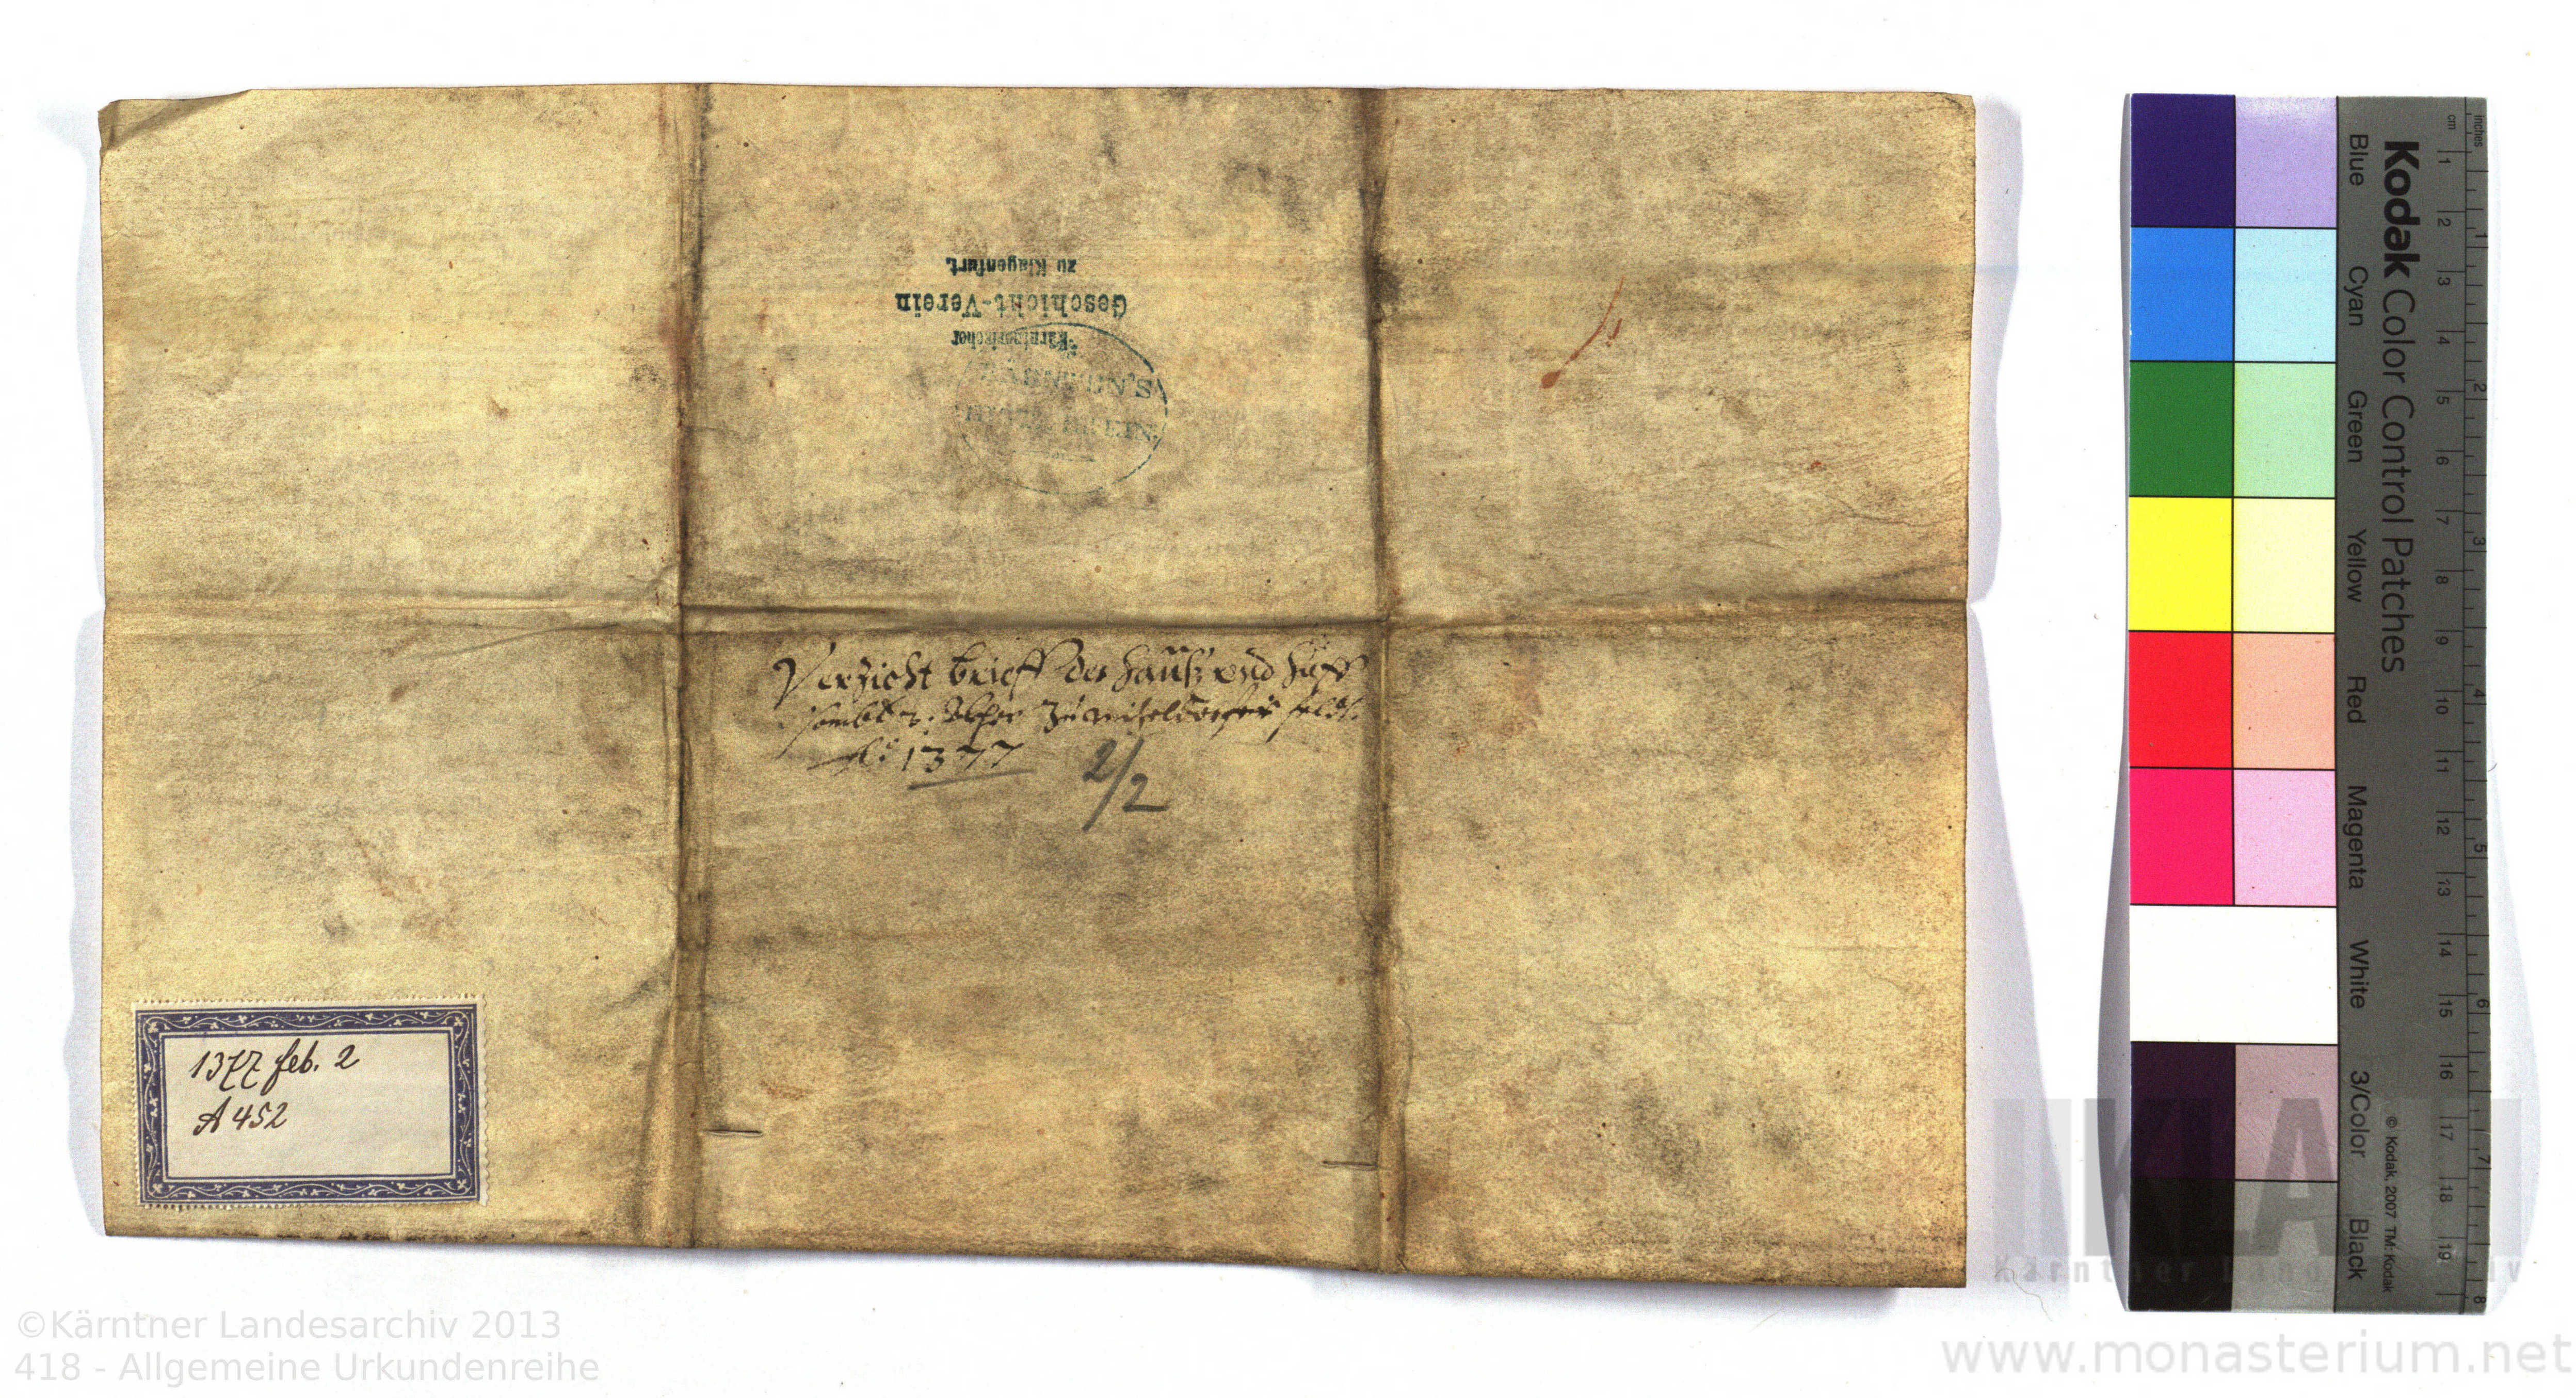 zu Klagenfurt.
Geschicht-Verein
Kärntnerischer
Verzicht brieff des hauß vnd hoff
sambt
Aō: 1377
2/2
1377 feb. 2
A 452
Kodak Color Control Patches
Blue Cyan Green Yellow Red Magenta White 3/Color Black
© Kodak, 2007 TM: Kodak
inches 1 2 3 4 5 6 7 8
cm 1 2 3 4 5 6 7 8 9 10 11 12 13 14 15 16 17 18 19
KLA
©Kärntner Landesarchiv 2013
418 - Allgemeine Urkundenreihe
www.monasterium.net